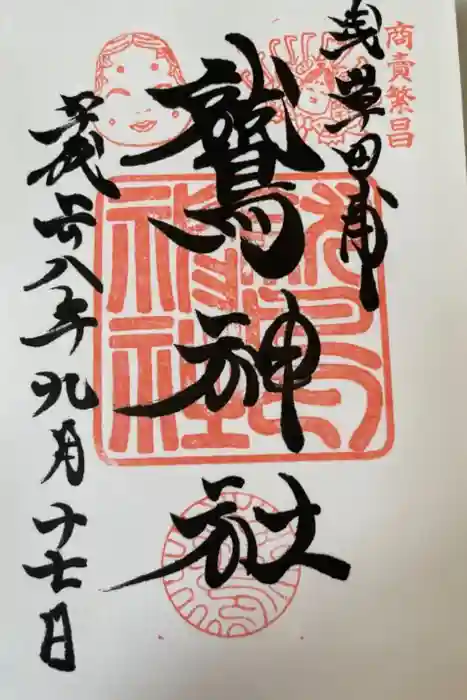 商賣繁昌
浅草田甫
鷲神社
平成廿八年九月十七日